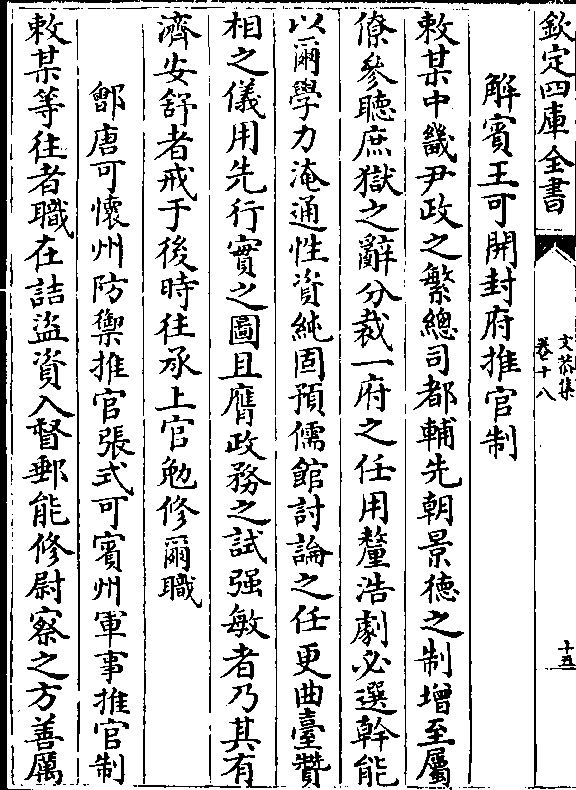 欽定四庫全書
文恭集
卷十八
十五
解賓王可開封府推官制
敕某中畿尹政之繁總司都輔先朝景德之制增至屬
僚參聽庶獄之辭分裁一府之任用釐浩劇必選幹能
以爾學力淹通性資純固預儒館討論之任更曲臺贊
相之儀用先行實之圖且膺政務之試强敏者乃其有
濟安舒者戒于後時往承上官勉修爾職
鄫唐可懷州防禦推官張式可賓州軍事推官制
敕某等往者職在詰盜資入督郵能修尉察之方善厲